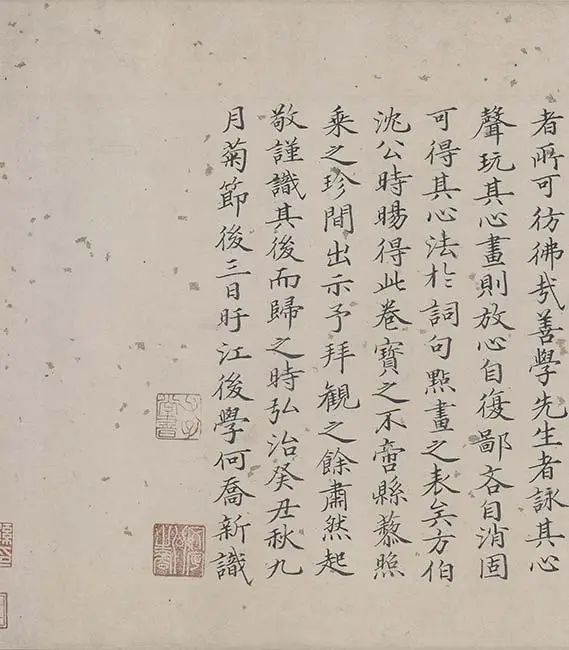 者所可彷彿哉善學先生者詠其心
聲玩其心畫則放心自復鄙吝自消固
可得其心法於詞句點畫之表矣方伯
沈公時暘得此卷寶之不啻縣藜照
乘之珍間出示予拜觀之餘肅然起
敬謹識其後而歸之時弘治癸丑秋九
月菊節後三日盱江後學何喬新識